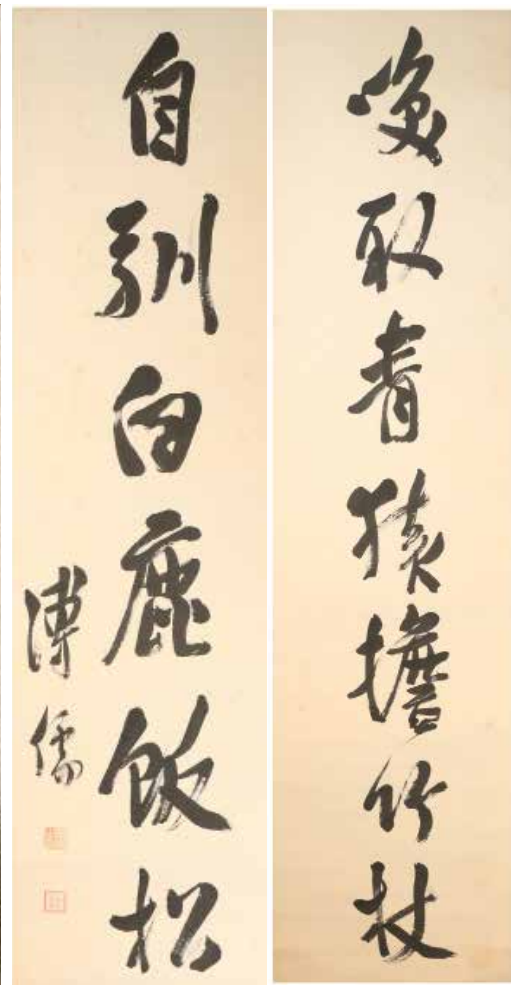 喚取青猿擔竹杖
自馴白鹿飯松
溥儒